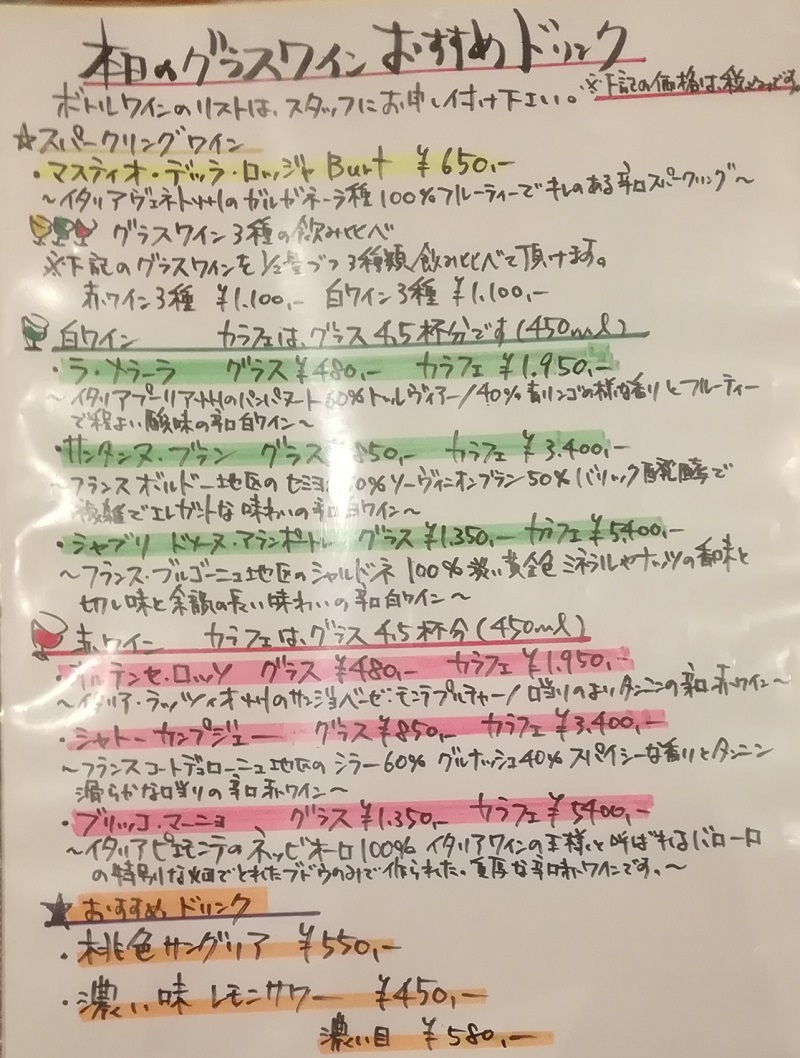 本日のグラスワイン おすすめドリンク
ボトルワインのリストは、スタッフにお申し付け下さい。※下記の価格は、税込です。
☆スパークリングワイン
・マスティオ・デッラ・ロッジャ Burt ¥650,-
～イタリアヴェネト州のガルガネーラ種100%フルーティーでキレのある辛口スパークリング～
グラスワイン3種の飲み比べ
※下記のグラスワインを1/2量づつ3種類、飲み比べて頂けます。
赤ワイン3種 ¥1.100,- 白ワイン3種 ¥1.100,-
白ワイン カラフェは、グラス4.5杯分です(450ml)
・ラ・メラーラ グラス¥480,- カラフェ¥1.950,-
～イタリアプーリア州のバンパヌート60%トゥルヴィアーノ40%青リンゴの様な香りとフルーティー
で程よい酸味の辛口白ワイン～
・サンタンヌ・ブラン グラス¥850,- カラフェ¥3.400,-
～フランスボルドー地区のセミヨン50%ソーヴィニオンブラン50%バリック醗酵で
複雑でエレガントな味わいの辛口白ワイン～
・シャブリ ドメーヌ・アランポートレ グラス¥1.350,- カラフェ¥5400,-
～フランス・ブルゴーニュ地区のシャルドネ100%淡い黄金色 ミネラルやナッツの香味と
切れ味と余韻の長い味わいの辛口白ワイン～
赤ワイン カラフェは、グラス4.5杯分(450ml)
・オルテンセ・ロッソ グラス¥480,- カラフェ¥1.950,-
～イタリア・ラッツィオ州のサンジョベーゼ・モンテプルチャーノ口当りのよいタンニンの辛口赤ワイン～
・シャトーカンプジェー グラス¥850,- カラフェ¥3.400,-
～フランスコートデュローニュ地区のシラー60%グルナッシュ40%スパイシーな香りとタンニン
滑らかな口当りの辛口赤ワイン～
・ブリッコ・マーニョ グラス¥1.350,- カラフェ¥5400,-
～イタリアピエモンテのネッビオーロ100%イタリアワインの王様と呼ばれるバローロ
の特別な畑でとれたブドウのみで作られた。重厚な辛口赤ワインです。～
★おすすめドリンク
・桃色サングリア ¥550,-
・濃い味レモンサワー ¥450,-
濃い目 ¥580,-